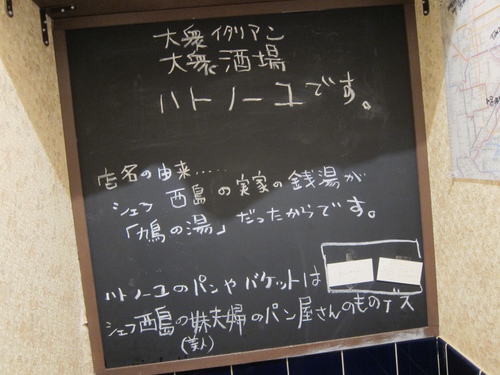 大衆イタリアン
大衆酒場
ハトノーユです。
店名の由来.....
シェフ 西島 の実家の銭湯が
「鳩の湯」だったからです。
ハトノーユのパンやバケットは
シェフ西島の妹夫婦のパン屋さんのものデス
(美人)